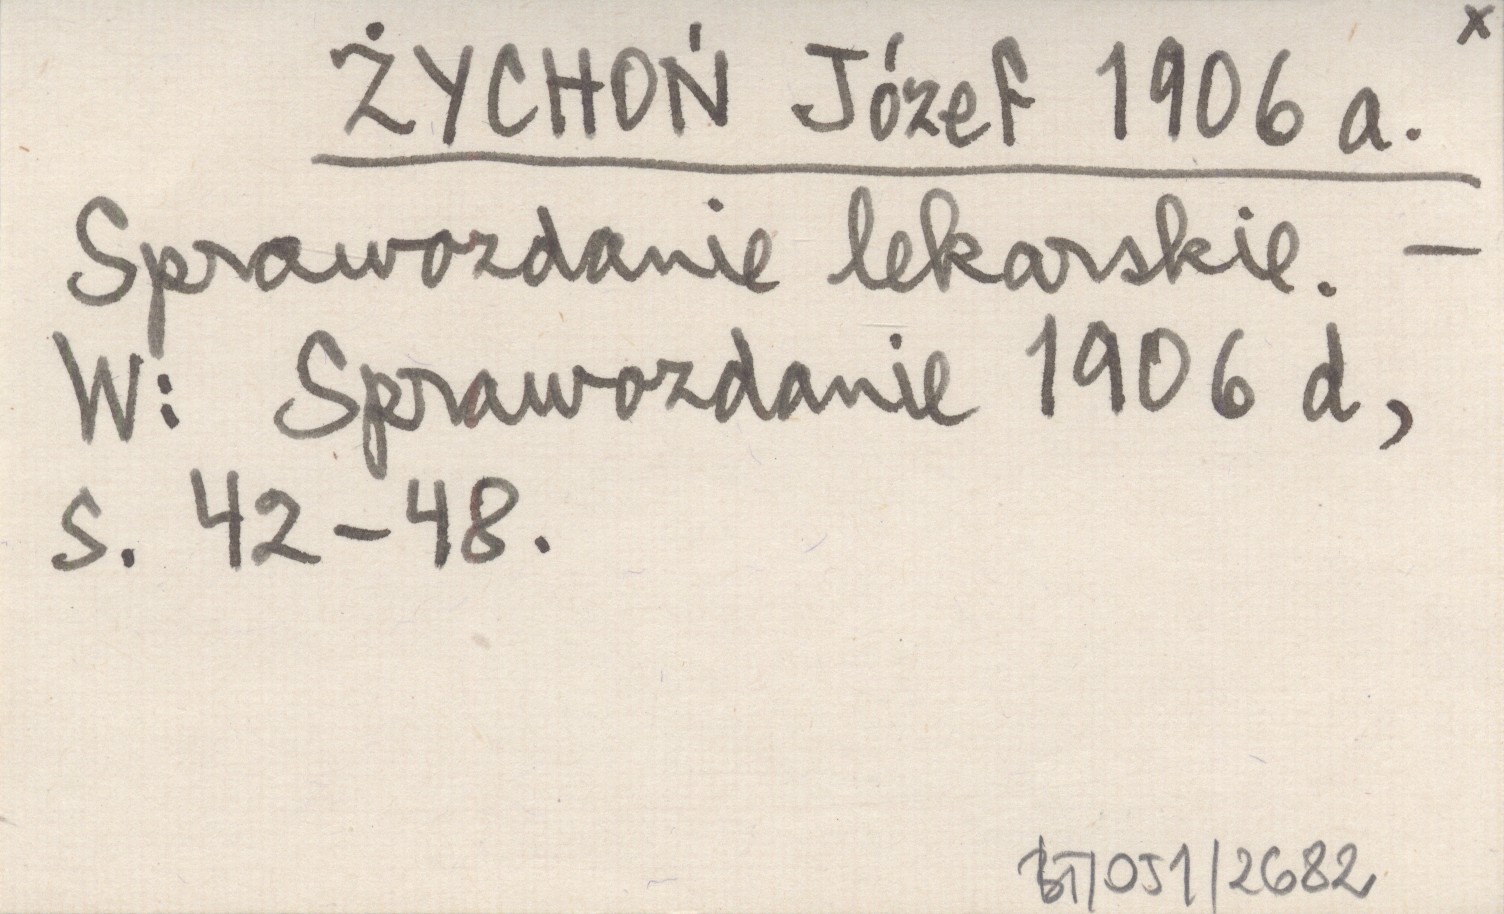 x
ŻYCHOŃ Józef 1906 a.
Sprawozdanie lekarskie. –
W: Sprawozdanie 1906 d,
s. 42–48.
BT/OJ1/2682